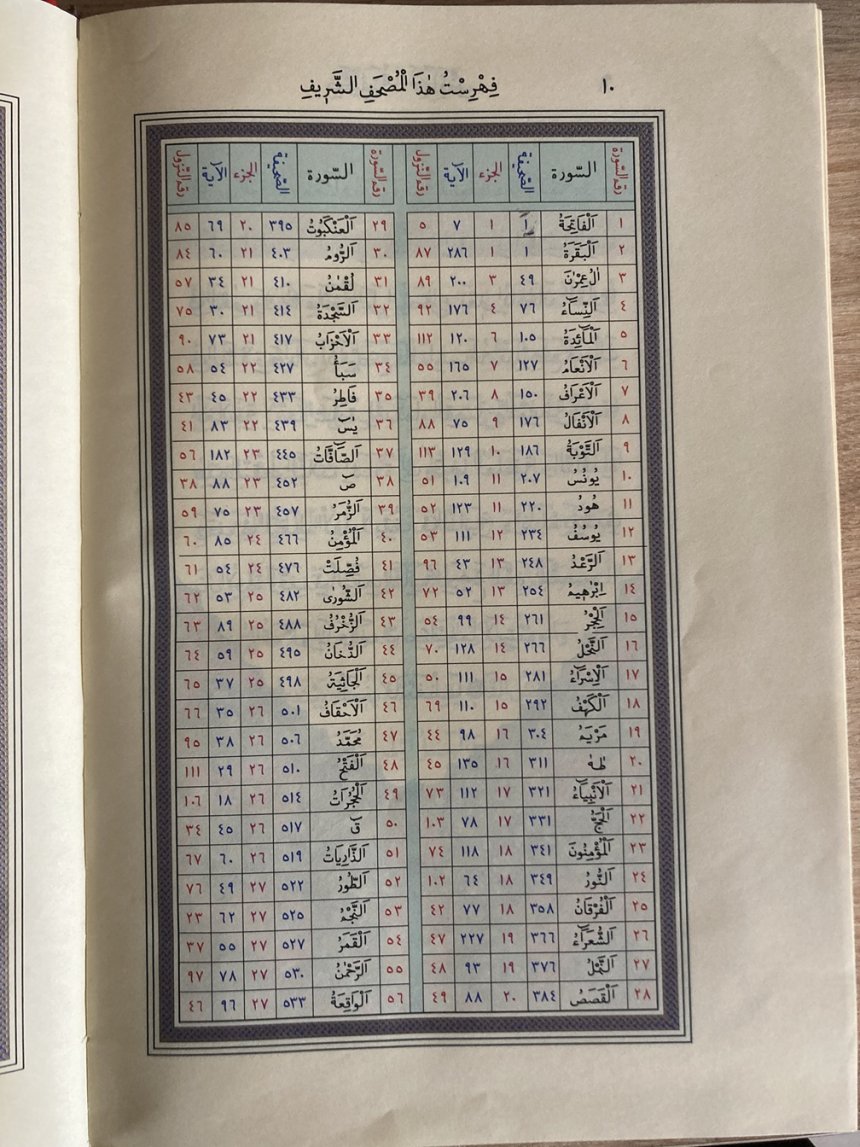 ١٠
فِهْرِسْتُ هٰذَا الْمُصْحَفِ الشَّرِيفِ
رقم السّورة السّورة الصّحيفة الجزء الآية رقم النّزول
١ اَلْفَاتِحَةُ ١ ٧ ٥
٢ اَلْبَقَرَةُ ١ ١ ٢٨٦ ٨٧
٣ اٰلُ عِمْرٰنَ ٤٩ ٣ ٢٠٠ ٨٩
٤ اَلنِّسَاءُ ٧٦ ٤ ١٧٦ ٩٢
٥ اَلْمَائِدَةُ ١٠٥ ٦ ١٢٠ ١١٢
٦ اَلْاَنْعَامُ ١٢٧ ٧ ١٦٥ ٥٥
٧ اَلْاَعْرَافُ ١٥٠ ٨ ٢٠٦ ٣٩
٨ اَلْاَنْفَالُ ١٧٦ ٩ ٧٥ ٨٨
٩ اَلتَّوْبَةُ ١٨٦ ١٠ ١٢٩ ١١٣
١٠ يُونُسُ ٢٠٧ ١١ ١٠٩ ٥١
١١ هُودُ ٢٢٠ ١١ ١٢٣ ٥٢
١٢ يُوسُفُ ٢٣٤ ١٢ ١١١ ٥٣
١٣ اَلرَّعْدُ ٢٤٨ ١٣ ٤٣ ٩٦
١٤ اِبْرٰهِيمُ ٢٥٤ ١٣ ٥٢ ٧٢
١٥ اَلْحِجْرُ ٢٦١ ١٤ ٩٩ ٥٤
١٦ اَلنَّحْلُ ٢٦٦ ١٤ ١٢٨ ٧٠
١٧ اَلْاِسْرَاءُ ٢٨١ ١٥ ١١١ ٥٠
١٨ اَلْكَهْفُ ٢٩٢ ١٥ ١١٠ ٦٩
١٩ مَرْيَمُ ٣٠٤ ١٦ ٩٨ ٤٤
٢٠ طٰهٰ ٣١١ ١٦ ١٣٥ ٤٥
٢١ اَلْاَنْبِيَاءُ ٣٢١ ١٧ ١١٢ ٧٣
٢٢ اَلْحَجُّ ٣٣١ ١٧ ٧٨ ١٠٣
٢٣ اَلْمُؤْمِنُونَ ٣٤١ ١٨ ١١٨ ٧٤
٢٤ اَلنُّورُ ٣٤٩ ١٨ ٦٤ ١٠٢
٢٥ اَلْفُرْقَانُ ٣٥٨ ١٨ ٧٧ ٤٢
٢٦ اَلشُّعَرَاءُ ٣٦٦ ١٩ ٢٢٧ ٤٧
٢٧ اَلنَّمْلُ ٣٧٦ ١٩ ٩٣ ٤٨
٢٨ اَلْقَصَصُ ٣٨٤ ٢٠ ٨٨ ٤٩
رقم السّورة السّورة الصّحيفة الجزء الآية رقم النّزول
٢٩ اَلْعَنْكَبُوتُ ٣٩٥ ٢٠ ٦٩ ٨٥
٣٠ اَلرُّومُ ٤٠٣ ٢١ ٦٠ ٨٤
٣١ لُقْمٰنُ ٤١٠ ٢١ ٣٤ ٥٧
٣٢ اَلسَّجْدَةُ ٤١٤ ٢١ ٣٠ ٧٥
٣٣ اَلْاَحْزَابُ ٤١٧ ٢١ ٧٣ ٩٠
٣٤ سَبَأُ ٤٢٧ ٢٢ ٥٤ ٥٨
٣٥ فَاطِرُ ٤٣٣ ٢٢ ٤٥ ٤٣
٣٦ يٰسٓ ٤٣٩ ٢٢ ٨٣ ٤١
٣٧ اَلصَّافَّاتُ ٤٤٥ ٢٣ ١٨٢ ٥٦
٣٨ صٓ ٤٥٢ ٢٣ ٨٨ ٣٨
٣٩ اَلزُّمَرُ ٤٥٧ ٢٣ ٧٥ ٥٩
٤٠ اَلْمُؤْمِنُ ٤٦٦ ٢٤ ٨٥ ٦٠
٤١ فُصِّلَتْ ٤٧٦ ٢٤ ٥٤ ٦١
٤٢ اَلشُّورٰى ٤٨٢ ٢٥ ٥٣ ٦٢
٤٣ اَلزُّخْرُفُ ٤٨٨ ٢٥ ٨٩ ٦٣
٤٤ اَلدُّخَانُ ٤٩٥ ٢٥ ٥٩ ٦٤
٤٥ اَلْجَاثِيَةُ ٤٩٨ ٢٥ ٣٧ ٦٥
٤٦ اَلْاَحْقَافُ ٥٠١ ٢٦ ٣٥ ٦٦
٤٧ مُحَمَّدُ ٥٠٦ ٢٦ ٣٨ ٩٥
٤٨ اَلْفَتْحُ ٥١٠ ٢٦ ٢٩ ١١١
٤٩ اَلْحُجُرَاتُ ٥١٤ ٢٦ ١٨ ١٠٦
٥٠ قٓ ٥١٧ ٢٦ ٤٥ ٣٤
٥١ اَلذَّارِيَاتُ ٥١٩ ٢٦ ٦٠ ٦٧
٥٢ اَلطُّورُ ٥٢٢ ٢٧ ٤٩ ٧٦
٥٣ اَلنَّجْمُ ٥٢٥ ٢٧ ٦٢ ٢٣
٥٤ اَلْقَمَرُ ٥٢٧ ٢٧ ٥٥ ٣٧
٥٥ اَلرَّحْمٰنُ ٥٣٠ ٢٧ ٧٨ ٩٧
٥٦ اَلْوَاقِعَةُ ٥٣٣ ٢٧ ٩٦ ٤٦